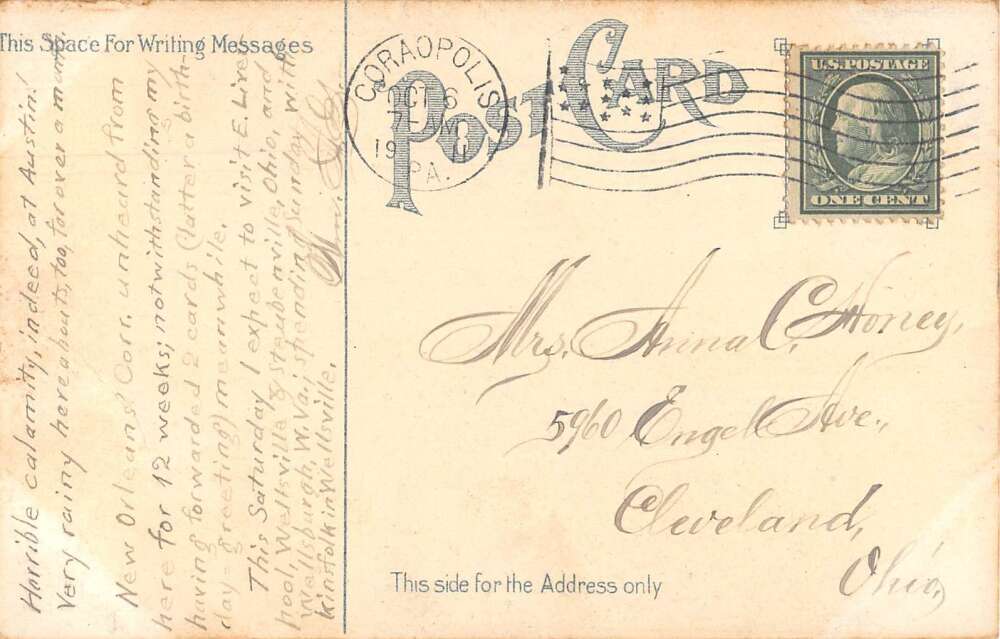 This Space For Writing Messages
POST CARD
CORAOPOLIS
OCT 6
1911
PA.
U.S. POSTAGE
ONE CENT
Horrible calamity, indeed, at Austin!
Very rainy hereabouts, too, for over a month.
New Orleans Corr. unheard from
here for 12 weeks; notwithstanding my
having forwarded 2 cards (latter a birth-
day-greeting) meanwhile.
This Saturday I expect to visit E. Liver-
pool, Wellsville & Steubenville, Ohio, and
Wellsburgh, W. Va., spending Sunday with
kinsfolk in Wellsville.
Wm.
Mrs. Anna C. Honey,
5960 Engel Ave.,
Cleveland,
Ohio,
This side for the Address only